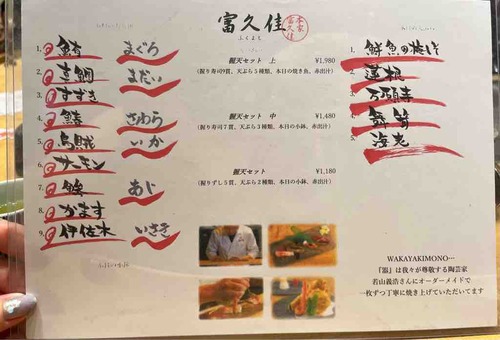 富久佳
ふくよし
本家
富久佳
握天セット 上 ¥1,980
(握り寿司9貫、天ぷら5種類、本日の焼き魚、赤出汁)
握天セット 中 ¥1,480
(握り寿司7貫、天ぷら2種類、本日の小鉢、赤出汁)
握天セット ¥1,180
(握りずし5貫、天ぷら2種類、本日の小鉢、赤出汁)
1. 鮪 まぐろ
2. 真鯛 まだい
3. すずき
4. 鰆 さわら
5. 烏賊 いか
6. サーモン
7. 鯵 あじ
8. かます
9. 伊佐木 いさき
1. 鮮魚の
2. 蓮根
3. 万願寺
4. 舞茸
5. 海老
WAKAYAKIMONO…
『器』は我々が尊敬する陶芸家
若山義浩さんにオーダーメイドで
一枚ずつ丁寧に焼き上げていただいてます